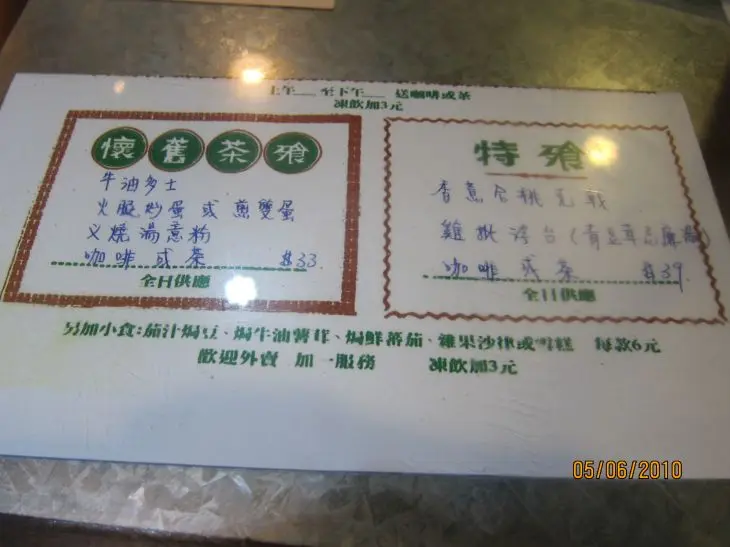 上午__至下午__ 送咖啡或茶
凍飲加3元
懷舊茶飱
牛油多士
火腿炒蛋 或 煎雙蛋
叉燒湯意粉
咖啡 或 茶 $33
全日供應
特飱
香蕉合桃克戟
雞批
咖啡 或 茶 $39
全日供應
另加小食:茄汁焗豆、焗牛油薯茸、焗鮮蕃茄、雜果沙律或雪糕 每款6元
歡迎外賣 加一服務 凍飲加3元
05/06/2010